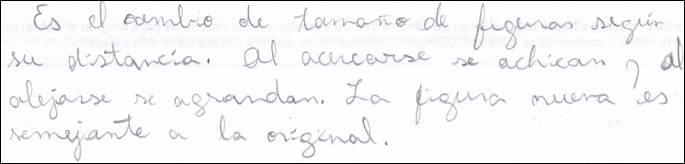 Es el cambio de tamaño de figuras según
su distancia. Al acercarse se achican y al
alejarse se agrandan. La figura nueva es
semejante a la original.